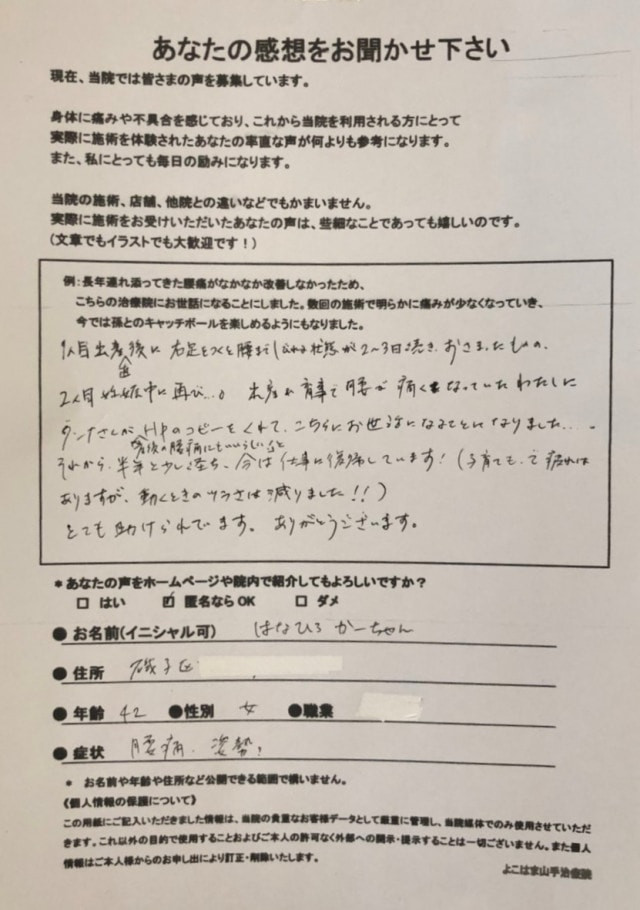 あなたの感想をお聞かせ下さい
現在、当院では皆さまの声を募集しています。
身体に痛みや不具合を感じており、これから当院を利用される方にとって
実際に施術を体験されたあなたの率直な声が何よりも参考になります。
また、私にとっても毎日の励みになります。
当院の施術、店舗、他院との違いなどでもかまいません。
実際に施術をお受けいただいたあなたの声は、些細なことであっても嬉しいのです。
(文章でもイラストでも大歓迎です!)
例:長年連れ添ってきた腰痛がなかなか改善しなかったため、
こちらの治療院にお世話になることにしました。数回の施術で明らかに痛みが少なくなっていき、
今では孫とのキャッチボールを楽しめるようにもなりました。
1人目出産後に 右足をつくと腰までしびれる状態が2~3日続き、おさまったものの、
2人目妊娠中に再び…。 出産、育児で腰が痛くなっていたわたしに
ダンナさんがHPのコピーをくれて、こちらにお世話になることになりました…。
産後の腰痛にもいいらしいよと
それから、半年と少し経ち、今は仕事に復帰しています!(子育ても、で疲れは
ありますが、動くときのツラさは減りました!!)
とても助けられています。ありがとうございます。
*あなたの声をホームページや院内で紹介してもよろしいですか?
□ はい ☑ 匿名ならOK □ ダメ
●お名前(イニシャル可) はなひろかーちゃん
●住所 磯子区
●年齢 42 ●性別 女 ●職業
●症状 腰痛、姿勢
* お名前や年齢や住所など公開できる範囲で構いません。
《個人情報の保護について》
この用紙にご記入いただきました情報は、当院の貴重なお客様データとして厳重に管理し、当院媒体でのみ使用させていただ
きます。これ以外の目的で使用することおよびご本人の許可なく外部への開示・提示することは一切ございません。また個人
情報はご本人様からのお申し出により訂正・削除いたします。
よこはま山手治療院